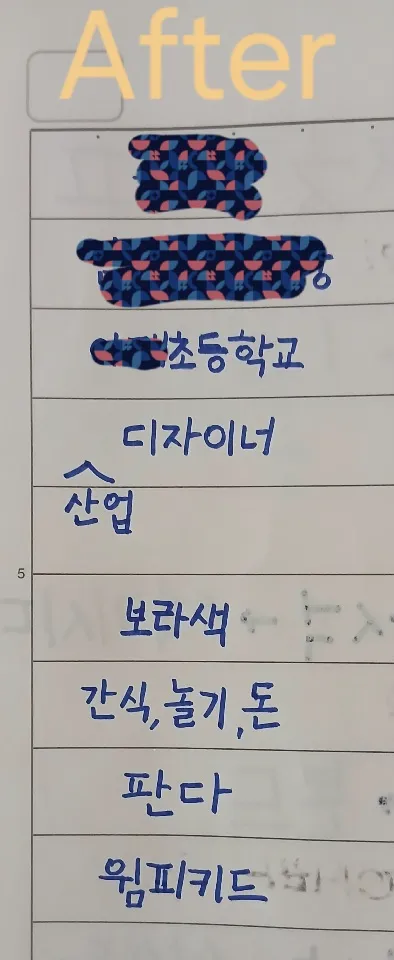 After
초등학교
디자이너
산업
5
보라색
간식, 놀기, 돈
판다
윔피키드